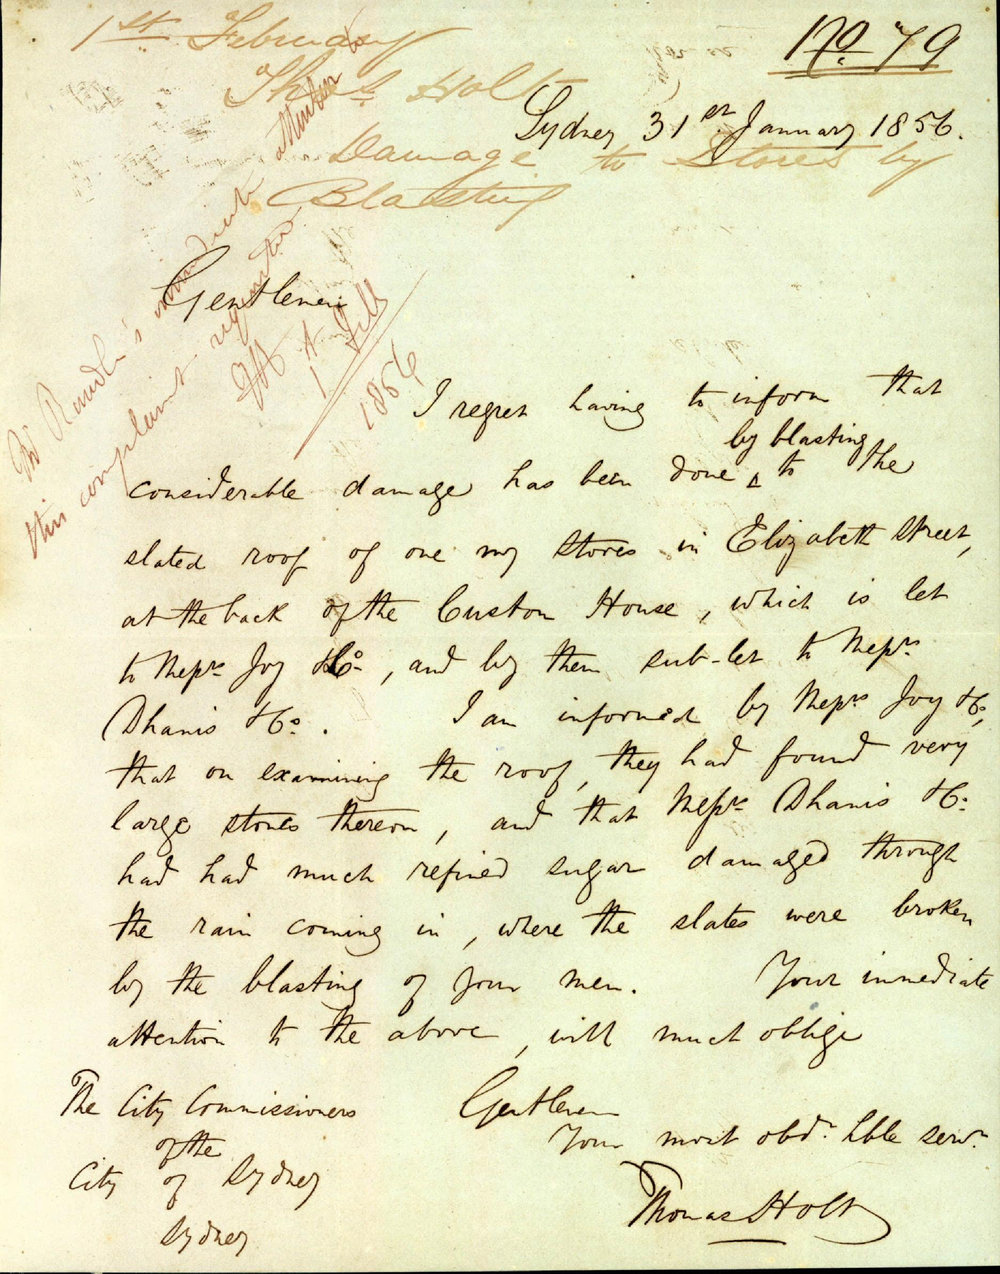 No. 79
1st February
Thos. Holt
Damage to Stores by
Blasting
Sydney 31st January 1856.
Mr Randle's immediate attention to
this complaint requested
1st Feby
1856
Gentlemen
I regret having to inform that
by blasting
considerable damage has been done ^ to the
slated roof of one my Stores in Elizabeth Street,
at the back of the Custom House, which is let
to Messrs Joy & Co., and by them sub-let to Messrs
Dhanis & Co. I am informed by Messrs Joy & Co,
that on examining the roof, they had found very
large stones thereon, and that Messrs Dhanis & Co.
had had much refined sugar damaged through
the rain coming in, where the slates were broken
by the blasting of your men. Your immediate
attention to the above, will much oblige
Gentlemen
Your most obdt. hble servt.
Thomas Holt
The City Commissioners
of the
City of Sydney
Sydney